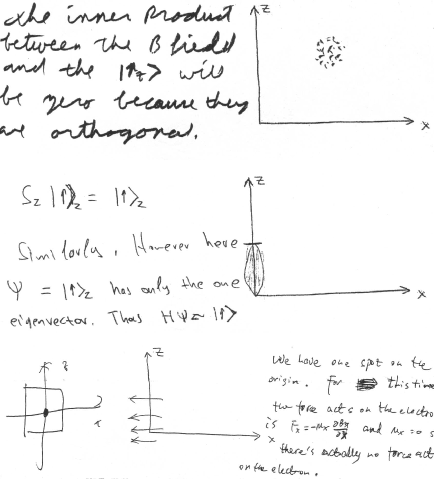 the inner product
between the B field
and the |↑z> will
be zero because they
are orthogonal.
Z
x
Sz |↑>z = |↑>z
Similarly, However here
ψ = |↑>z has only the one
eigenvector. Thus Hψ ~ |↑>
Z
x
Z
x
We have one spot on the
origin. For this time
the force acts on the electro
is Fx = -μx ∂Bx/∂x and μx = 0 s
there's actually no force act
on the electron.